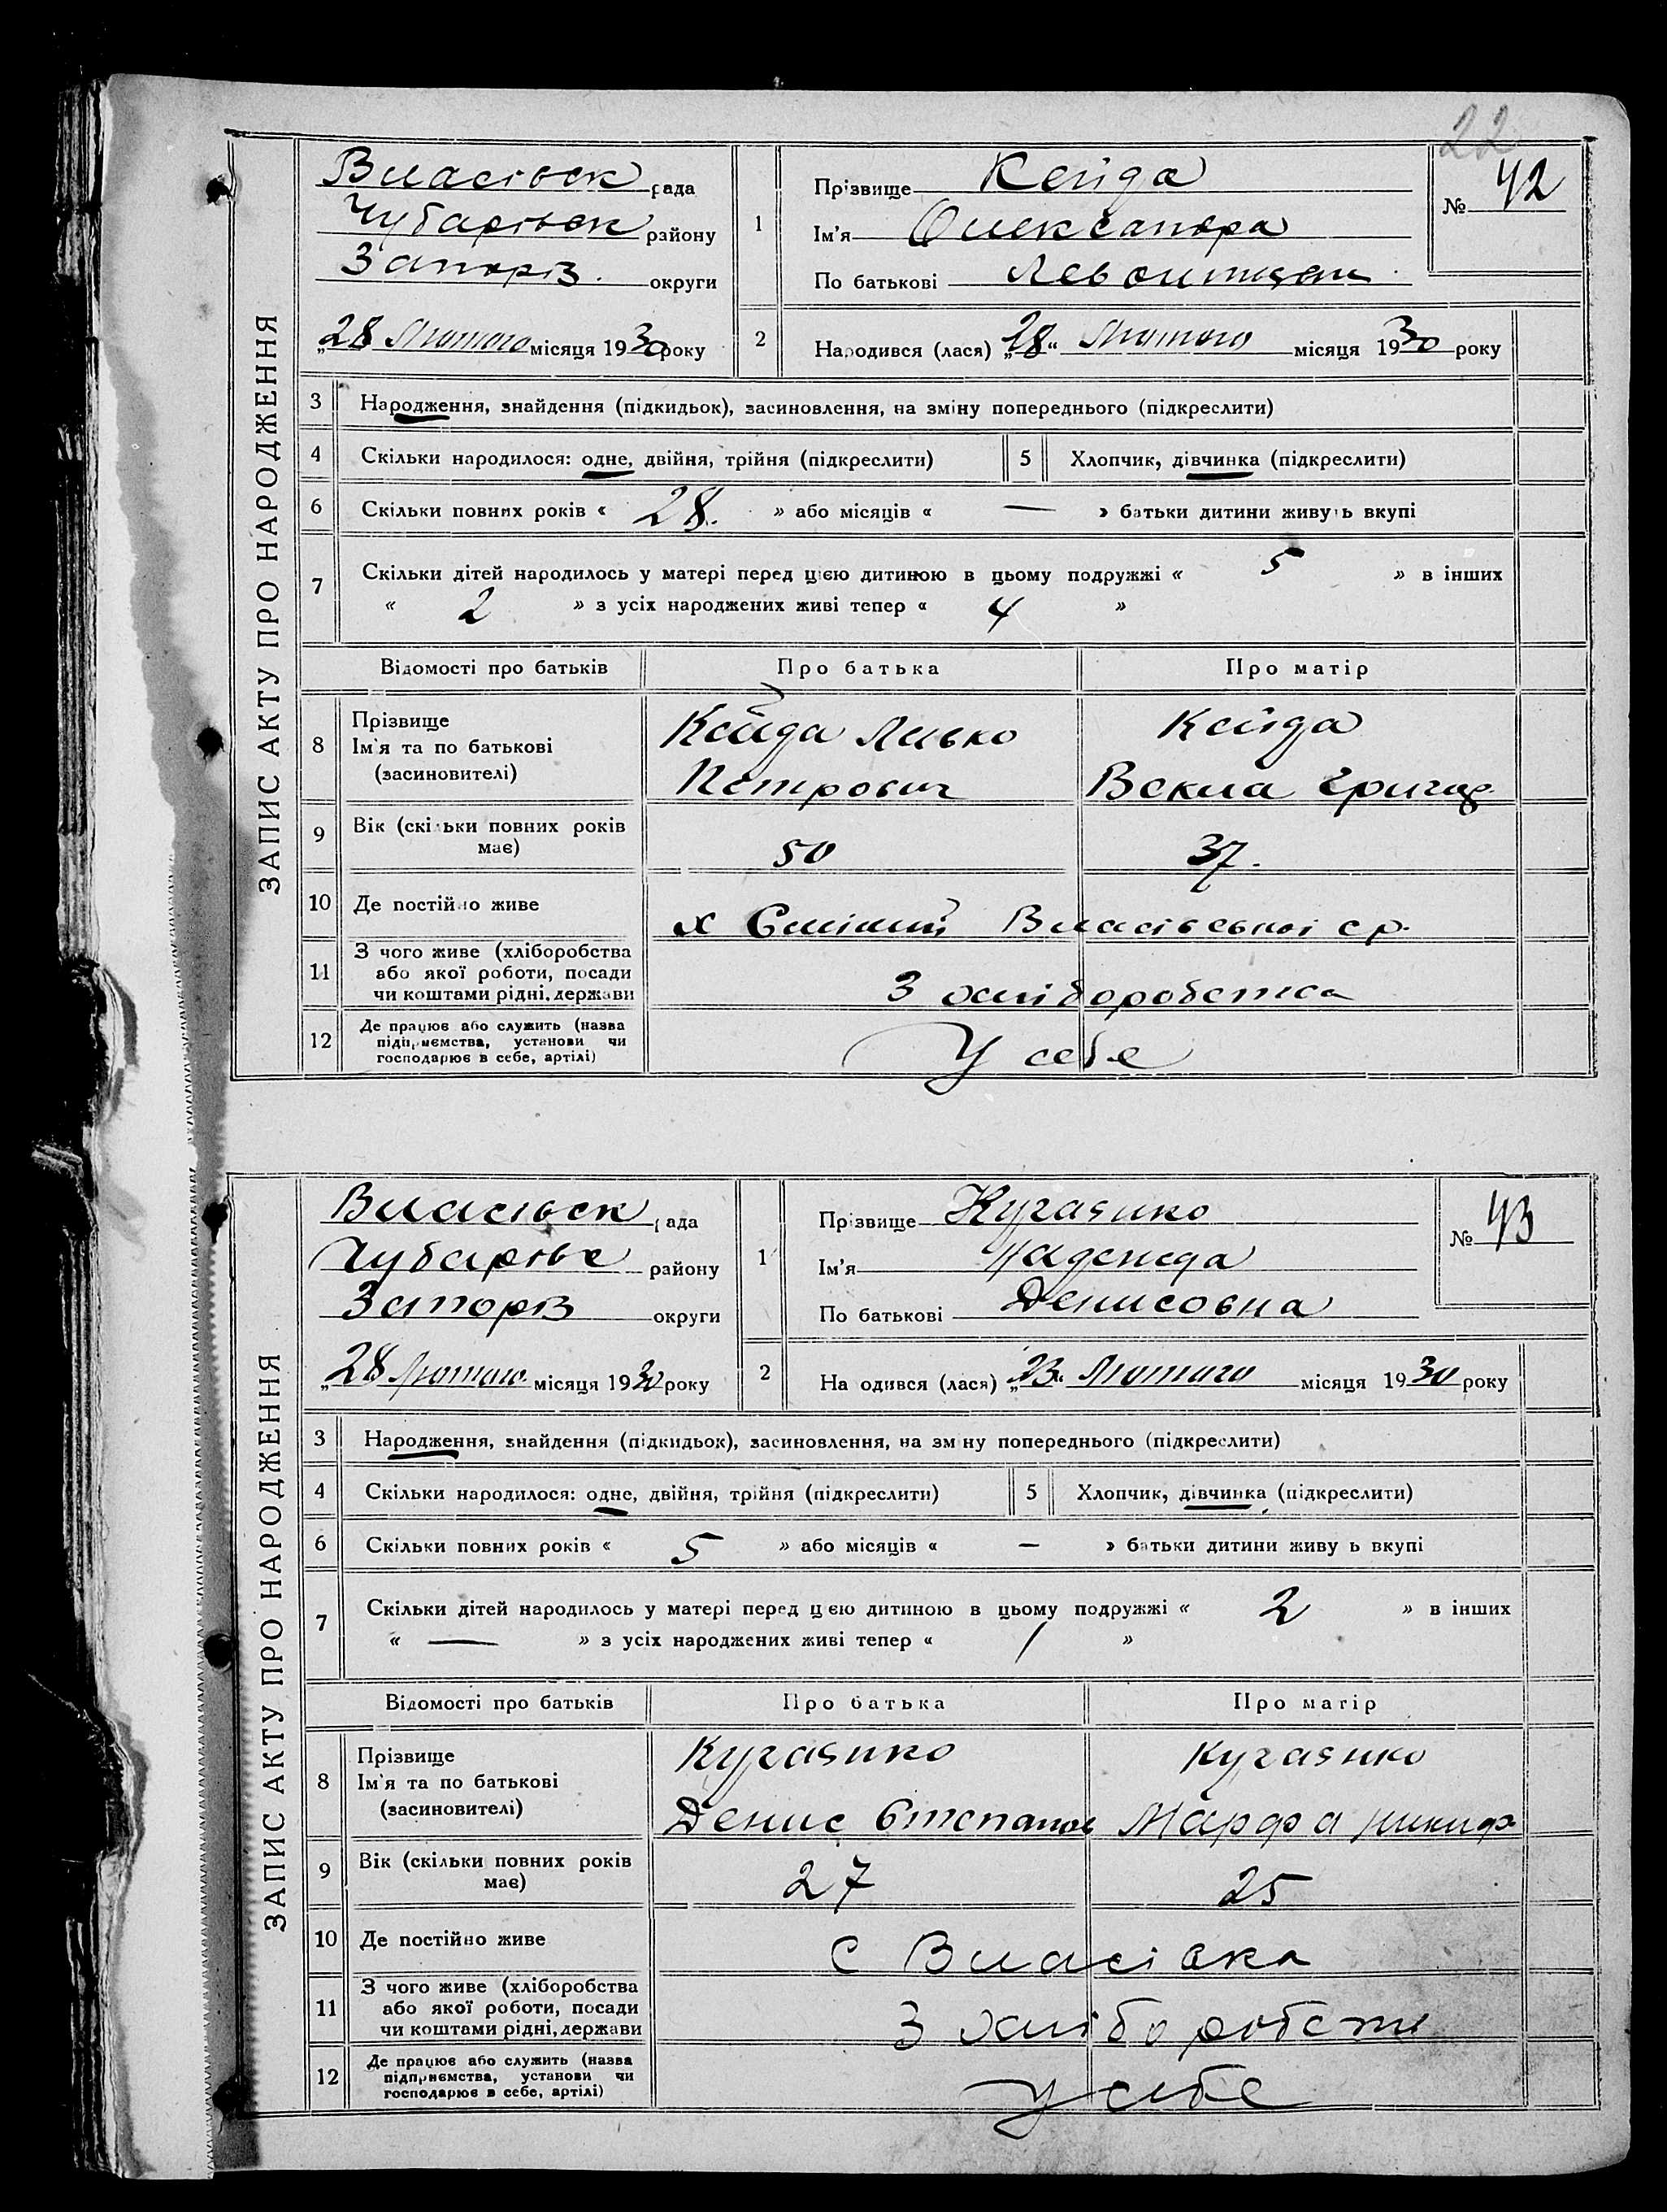 22
ЗАПИС АКТУ ПРО НАРОДЖЕННЯ
Власівськ рада
Чубарівськ району
Запоріз. округи
„28 Лютого місяця 1930 року
1
Прізвище Кейда
Ім'я Олександра
По батькові
№ 42
2
Народився (лася) „28“ Лютого місяця 1930 року
3 Народження, знайдення (підкидьок), засиновлення, на зміну попереднього (підкреслити)
4 Скільки народилося: одне, двійня, трійня (підкреслити)
5 Хлопчик, дівчинка (підкреслити)
6 Скільки повних років « 28. » або місяців « — » батьки дитини живуть вкупі
7 Скільки дітей народилось у матері перед цією дитиною в цьому подружжі « 5 » в інших
« 2 » з усіх народжених живі тепер « 4 »
Відомості про батьків Про батька Про матір
8 Прізвище
Ім'я та по батькові
(засиновителі)
Кейда Левко
Петрович
Кейда
Векла Григор
9 Вік (скільки повних років
має)
50 37.
10 Де постійно живе
х Власівської с р.
11 З чого живе (хліборобства
або якої роботи, посади
чи коштами рідні, держави
З хліборобства
12 Де працює або служить (назва
підприємства, установи чи
господарює в себе, артілі)
У себе
ЗАПИС АКТУ ПРО НАРОДЖЕННЯ
Власівськ рада
Чубарівс району
Запоріз округи
„28 Лютого місяця 1930 року
1
Прізвище Кугаенко
Ім'я Надежда
По батькові Денисовна
№ 43
2
Народився (лася) „23“ Лютого місяця 1930 року
3 Народження, знайдення (підкидьок), засиновлення, на зміну попереднього (підкреслити)
4 Скільки народилося: одне, двійня, трійня (підкреслити)
5 Хлопчик, дівчинка (підкреслити)
6 Скільки повних років « 5 » або місяців « — » батьки дитини живуть вкупі
7 Скільки дітей народилось у матері перед цією дитиною в цьому подружжі « 2 » в інших
« — » з усіх народжених живі тепер « 1 »
Відомості про батьків Про батька Про матір
8 Прізвище
Ім'я та по батькові
(засиновителі)
Кугаенко
Денис Степанов
Кугаенко
Марфа Никиф
9 Вік (скільки повних років
має)
27 25
10 Де постійно живе
С Власівка
11 З чого живе (хліборобства
або якої роботи, посади
чи коштами рідні, держави
З хліборобств
12 Де працює або служить (назва
підприємства, установи чи
господарює в себе, артілі)
У себе